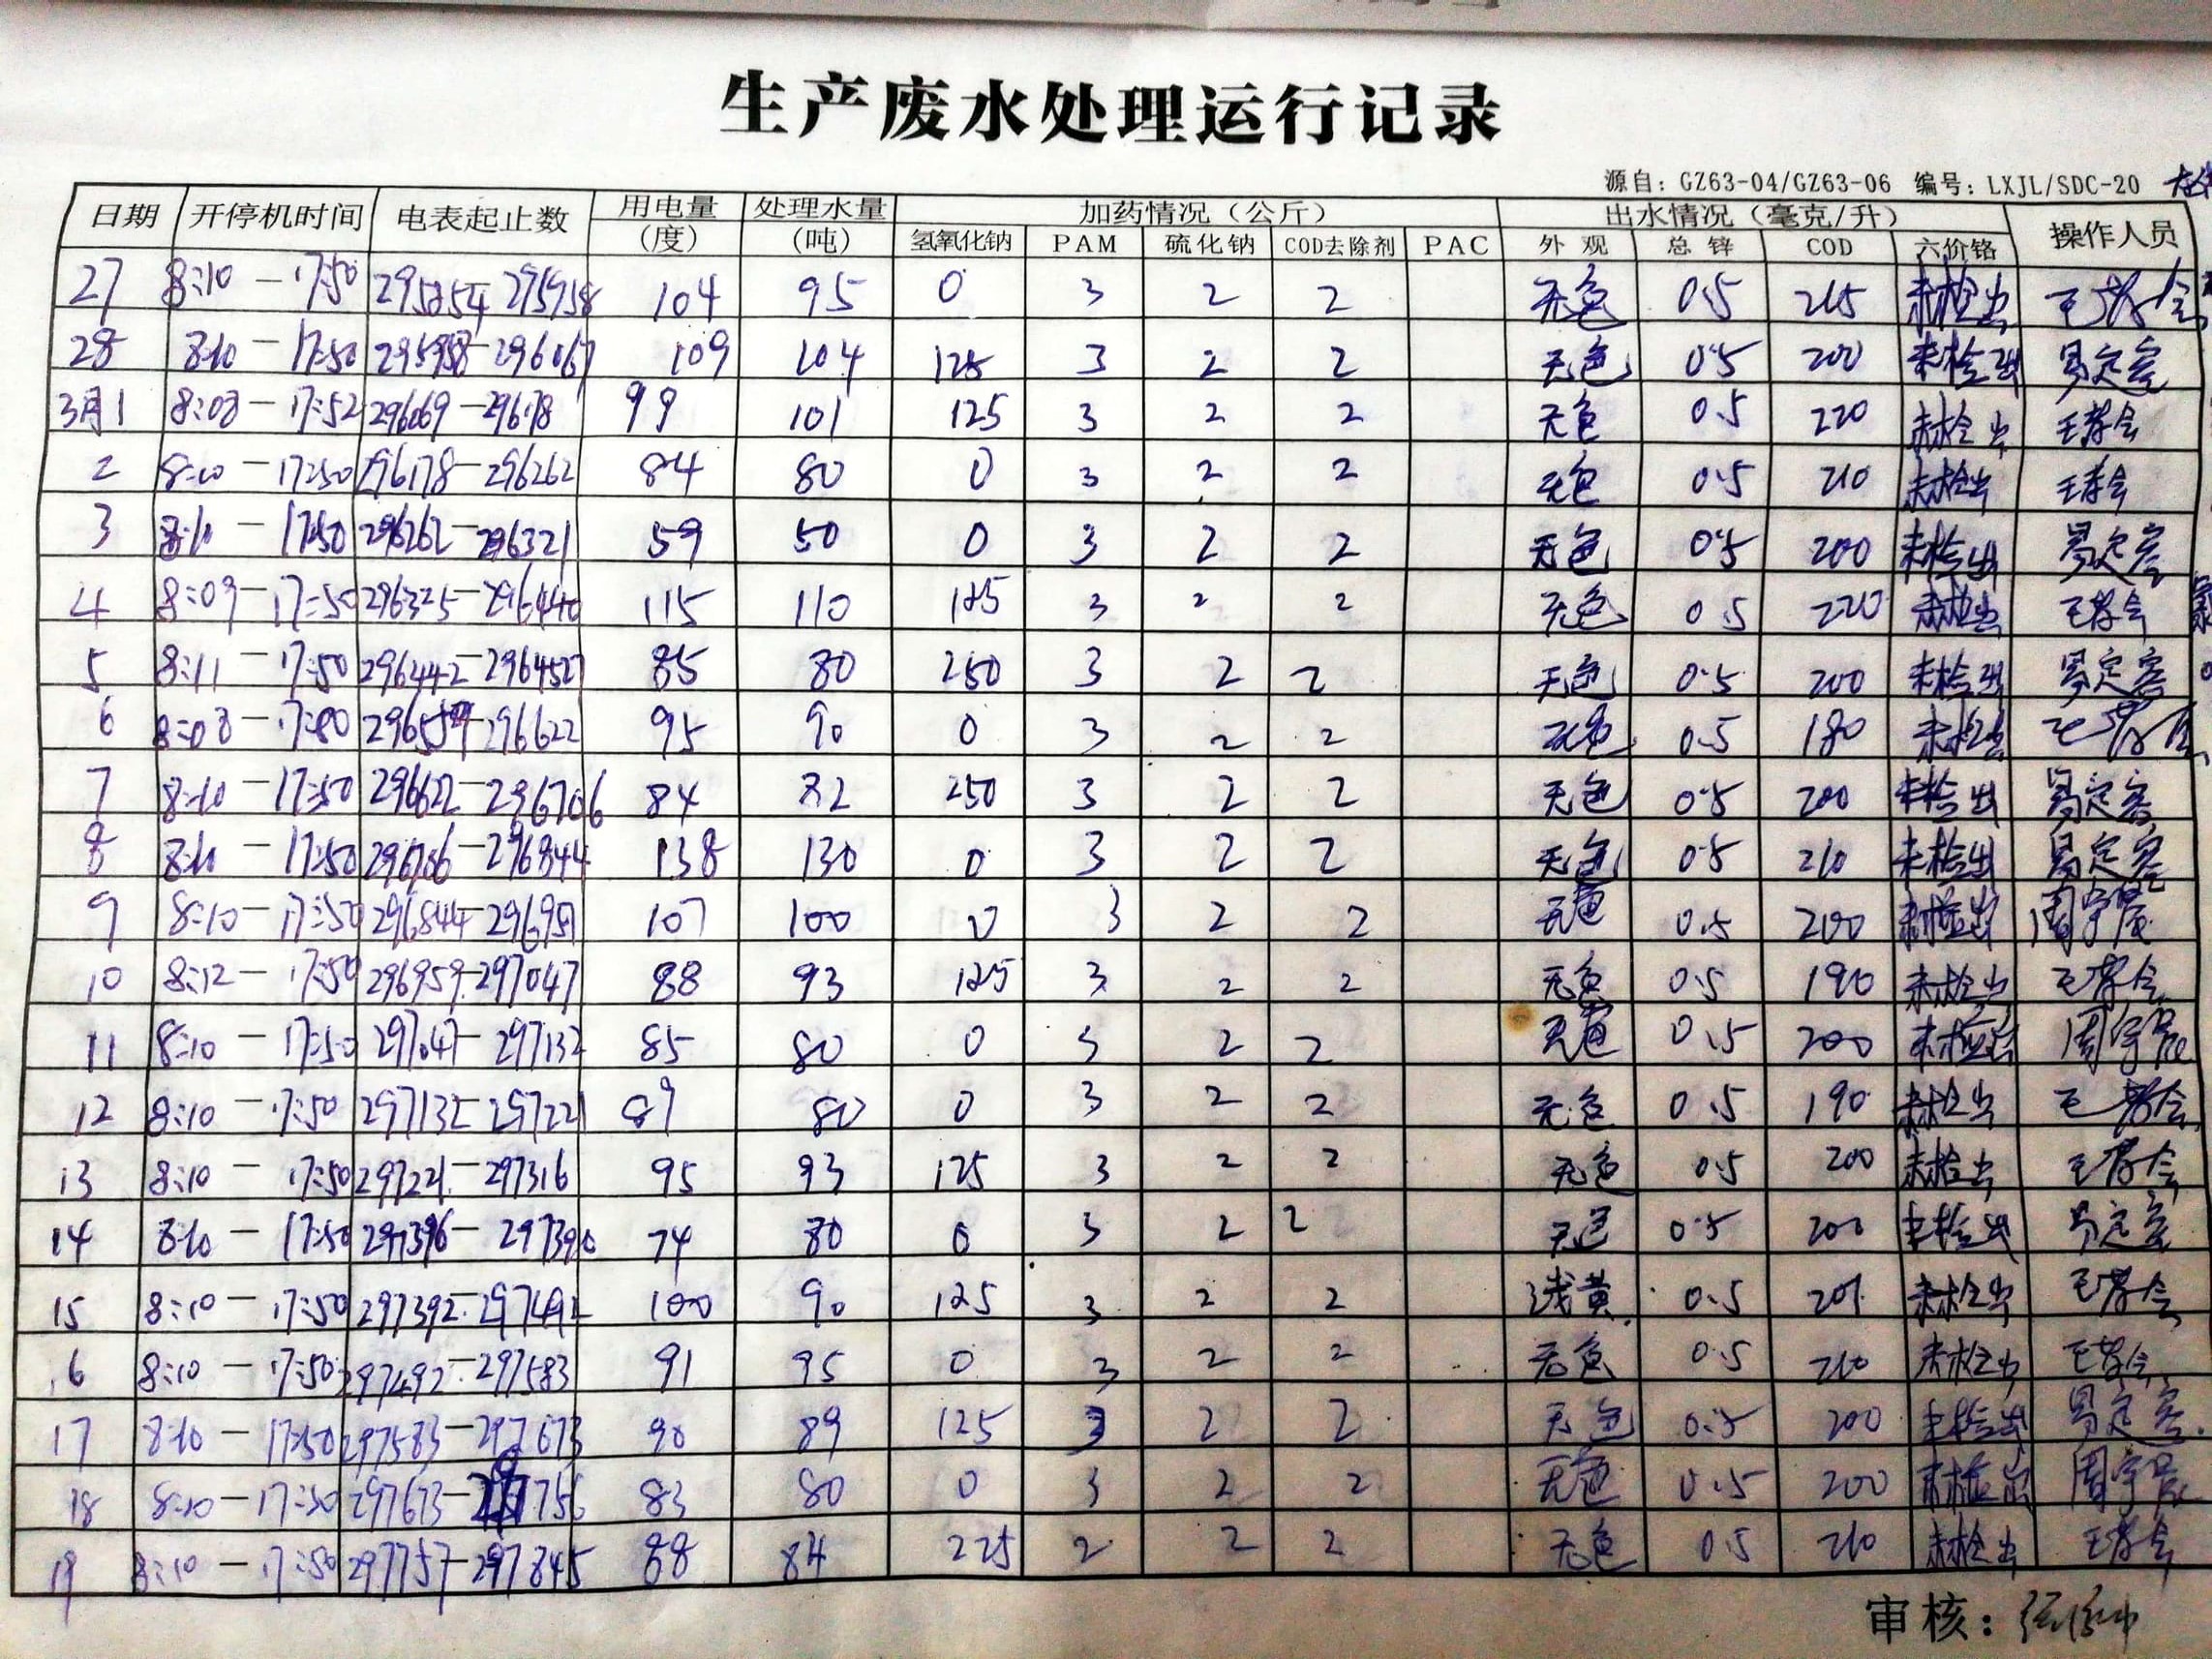 生产废水处理运行记录
源自：GZ63-04/GZ63-06 编号：LXJL/SDC-20
日期 开停机时间 电表起止数 用电量（度） 处理水量（吨） 加药情况（公斤） 出水情况（毫克/升） 操作人员
氢氧化钠 PAM 硫化钠 COD去除剂 PAC 外观 总锌 COD 六价铬
27 8:10－17:50 295854－295958 104 95 0 3 2 2 无色 0.5 215 未检出 王孝会
28 8:10－17:50 295958－296067 109 104 125 3 2 2 无色 0.5 200 未检出 易定容
3月1 8:08－17:52 296069－296178 99 101 125 3 2 2 无色 0.5 220 未检出 王孝会
2 8:10－17:50 296178－296262 84 80 0 3 2 2 无色 0.5 210 未检出 王孝会
3 8:10－17:50 296262－296321 59 50 0 3 2 2 无色 0.5 200 未检出 易定容
4 8:09－17:50 296325－296440 115 110 125 3 2 2 无色 0.5 220 未检出 王孝会
5 8:11－17:50 296442－2964527 85 80 250 3 2 2 无色 0.5 200 未检出 易定容
6 8:08－17:50 296622 95 90 0 3 2 2 无色 0.5 180 未检出 王孝会
7 8:10－17:50 296622－296706 84 82 250 3 2 2 无色 0.5 200 未检出 易定容
8 8:10－17:50 296706－296844 138 130 0 3 2 2 无色 0.5 210 未检出 易定容
9 8:10－17:50 296844－296951 107 100 0 3 2 2 无色 0.5 200 未检出 周宇晟
10 8:12－17:50 296959－297047 88 93 125 3 2 2 无色 0.5 190 未检出 王孝会
11 8:10－17:50 297047－297132 85 80 0 3 2 2 无色 0.5 200 未检出 周宇晟
12 8:10－17:50 297132－297221 89 80 0 3 2 2 无色 0.5 190 未检出 王孝会
13 8:10－17:50 297221－297316 95 93 125 3 2 2 无色 0.5 200 未检出 王孝会
14 8:10－17:50 297316－297390 74 80 0 3 2 2 无色 0.5 200 未检出 易定容
15 8:10－17:50 297392－297492 100 90 125 3 2 2 浅黄 0.5 201 未检出 王孝会
16 8:10－17:50 297492－297583 91 95 0 3 2 2 无色 0.5 210 未检出 王孝会
17 8:10－17:50 297583－297673 90 89 125 3 2 2 无色 0.5 200 未检出 易定容
18 8:10－17:50 297673－297756 83 80 0 3 2 2 无色 0.5 200 未检出 周宇晟
19 8:10－17:50 297757－297845 88 84 225 2 2 2 无色 0.5 210 未检出 王孝会
审核：